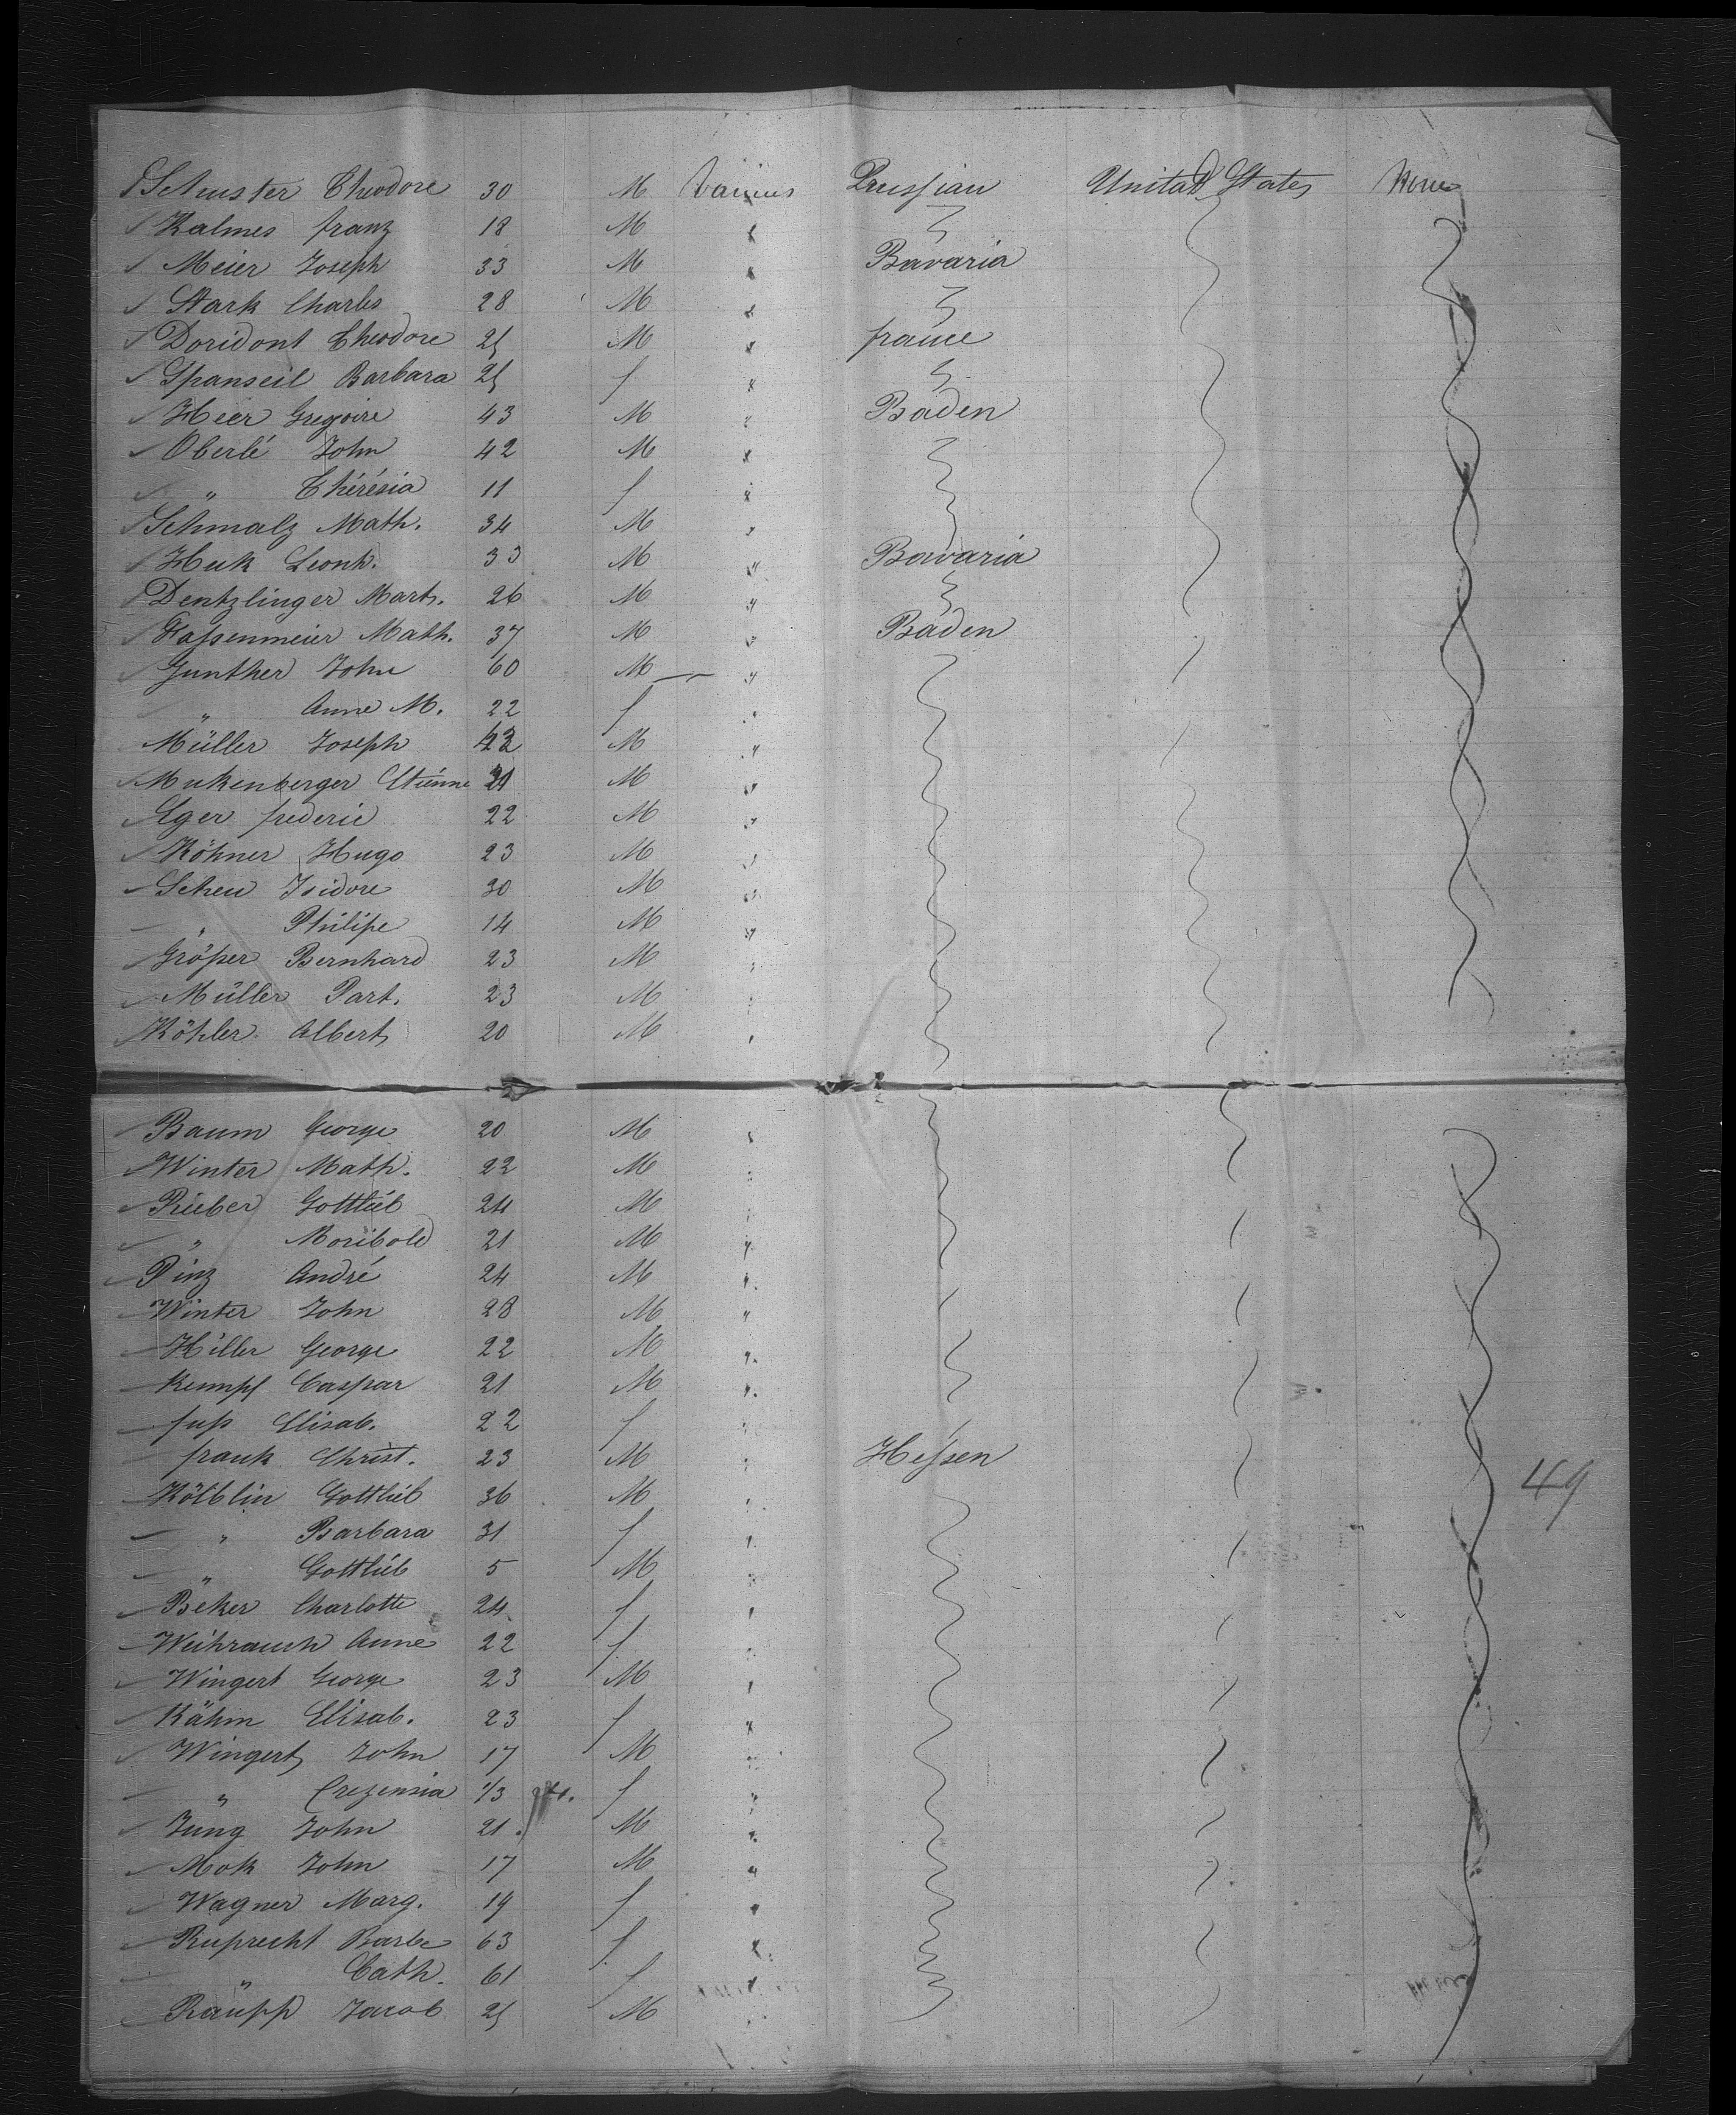 Schuster Theodore 30 M Various Prussian United States None
Kalmes franz 18 M "
Meier Joseph 33 M " Bavaria
Stark Charles 28 M "
Doridont Theodore 25 M " france
Spanseil Barbara 25 f "
Heer Gregoire 43 M " Baden
Oberlé John 42 M "
" Thérésia 11 f "
Schmalz Math. 34 M "
Huk Leonh. 33 M " Bavaria
Dentzlinger Mart. 26 M "
Hassenmeier Math. 37 M " Baden
Gunther John 60 M "
" Anne M. 22 f "
Müller Joseph 42 M "
Mukenberger Etienne 21 M "
Eger frederic 22 M "
Köhner Hugo 23 M "
Scheu Isidore 30 M "
" Philipe 14 M "
Größer Bernhard 23 M "
Müller Part. 23 M "
Köhler Albert 20 M "
Baum George 20 M "
Winter Math. 22 M "
Rieber Gottlieb 24 M "
" Moribold 21 M "
Pinz André 24 M "
Winter John 28 M "
Hiller George 22 M "
Kempf Caspar 21 M "
fuß Elisab. 22 f "
frank Christ. 23 M " Hessen
Kölblin Gottlieb 36 M "
" Barbara 31 f "
" Gottlieb 5 M "
Beker Charlotte 24 f "
Weihrauch Anne 22 f "
Wingert George 23 M "
Kähm Elisab. 23 f "
Wingert John 17 M "
" Crezensia 1/3 f "
Jung John 21 M "
Mok John 17 M "
Wagner Marg. 19 f "
Ruprecht Barbe 63 f "
" Cath. 61 f "
Raupp Jacob 25 M "
49